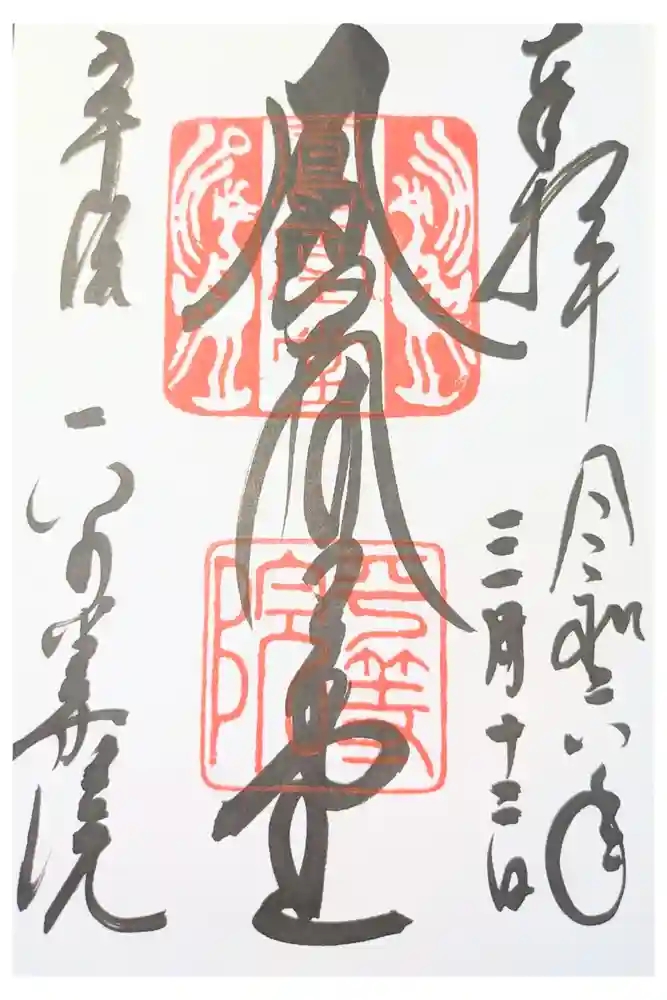 奉拝
令和六年
三月十二日
鳳凰堂
宇治
平等院
鳳凰堂
平等院